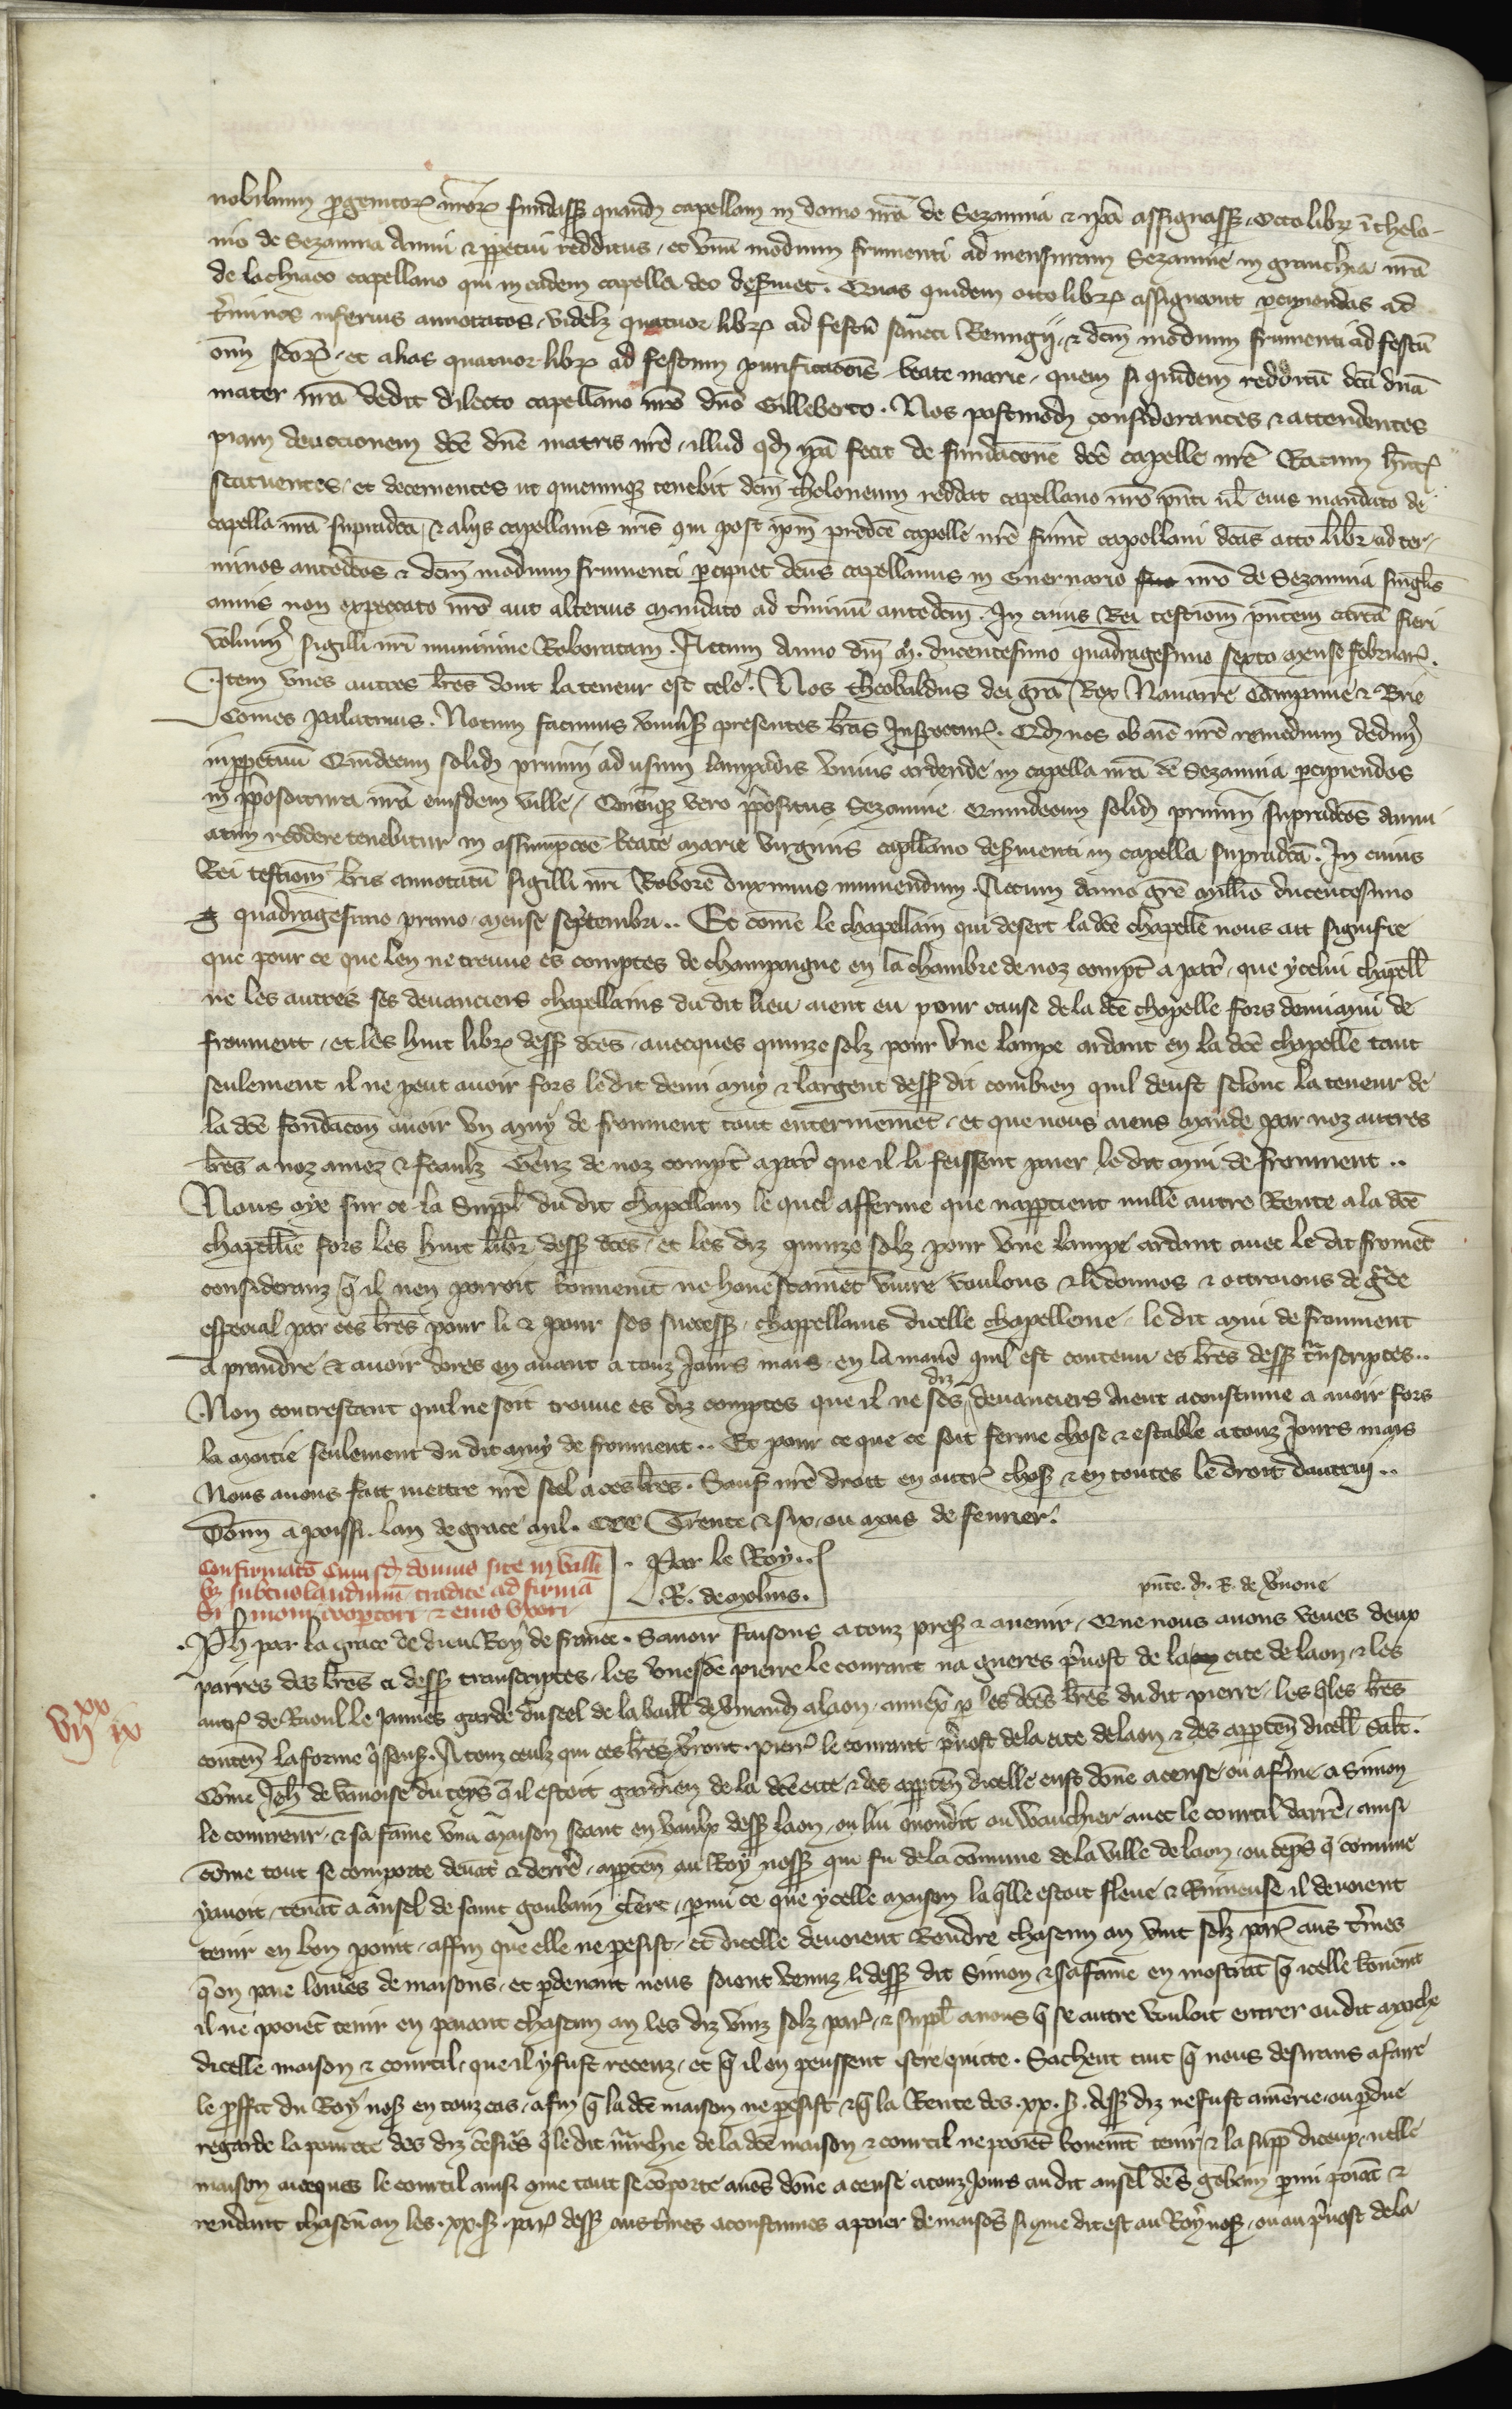 nobilium progenitoꝝ nr̄oꝝ fundasse quandā capellam in domo nr̄a de Sezannia & ip̄a assignasse octo libr̄ ī thelo-
nio de Sezannia annui & ꝑpetui redditus, et vnū modium frumenti ad mensuram Sezannie in granchia nr̄a
de lachiaco capellano qui in eadem capella deo deseruiet. Quas quidem octo libr̄ assignauit percipiendas ad
t̄minos inferius annotatos, videlz quatuor libr̄ ad festū sancti Remigij, & dc̄m modium frumenti ad festū
om̄ sc̄oꝝ, et alias quatuor libr̄ ad festum purificacōis beate marie, quem si quidem redditū dc̄a dn̄a
mater nr̄a dedit dilecto capellano nr̄o dn̄o Gilleberto. Nos postmodū considerantes & attendentes
piam deuocionem dc̄e dn̄e matris nr̄e, illud qd ip̄a fecit de fundacōne dc̄e capelle nr̄e Ratum hn̄tes
statuentes, et decernentes ut quicumqz tenebit dc̄m theloneum reddat capellano nr̄o pn̄ti ul̄ eius mandato de
capella nr̄a supradc̄a, & alijs capellanis nr̄is qui post ip̄m predc̄e capelle nr̄e fuint capellani dc̄as octo libr̄ ad ter-
minos antedc̄os & dc̄m modium frumenti percipiet dc̄us capellanus in Guernario nr̄o de Sezannia singl̄is
annis non expectato nr̄o aut alterius mandato ad t̄minū antedc̄m. In cuius Rei testiom̄ pn̄tem cartā fieri
voluim̄ sigilli nr̄i munimine Roboratam. Actum Anno dn̄i m̊. ducentesimo quadragesimo sexto mense februar̄.
Item vnes autres lr̄es dont la teneur est tele. Nos Theobaldus dei grā Rex Nauarre Campanie & Brie
Comes palatinus. Notum facimus vniuers̄ presentes lr̄as Inspecturꝭ. Qd nos ob aīe nr̄e remedium dedim̄
inꝑpetuū Quīdecim solid̄ pruuin̄ ad usum lampadis vnius ardende in capella nr̄a de Sezannia percipiendos
in p̄positura nr̄a eiusdem ville, Quicūqz vero p̄positus Sezannie Quindecim solid̄ pruuin̄ supradc̄os annu
atim reddere tenebitur in assumpcōe beate marie virginis capll̄ano deseruienti in capella supradc̄a. In cuius
Rei testiom̄ lr̄is annotatū sigilli nr̄i Robore duximus muniendum. Actum anno grē mill̄io ducentesimo
quadragesimo primo, mense septembri.. Et cōme le chapellain qui desert la dc̄e chapelle nous ait signifie
que pour ce que len ne treuue es comptes de champaigne en la chambre de noz compt̄ a par̄, que ycelui chapell̄
ne les autres ses deuanciers chapellains du dit lieu aient eu pour cause de la dc̄e chapelle fors demi mui de
froument, et les huit libr̄ dess̄ dc̄es, auecques quinze solz pour vne lampe ardant en la dc̄e chapelle tant
seulement il ne peut auoir fors le dit demi muy & largent dess̄ dit combien quil deust selonc la teneur de
la dc̄e fondacōn auoir vn muy de froument tout entierement, et que nous aiens mande par noz autres
lr̄es a noz amez & feaulz Genz de noz compt̄ a par̄ que il li feissent paier le dit mui de froument..
Nous oye sur ce la Suppl̄ du dit chapellain le quel afferme que napptient nulle autre Rente a la dc̄e
chapellie fors les huit libr̄ dess̄ dc̄es, et les diz quinze solz pour vne lampe ardant auec le dit fromēt
consideranz q̄ il nen porroit conuenīt ne honestamēt viure Voulons & li donnos & ottroions de grāce
especial par ces lr̄es pour li & pour ses success̄, chappellains dicelle chapellenie, le dit mui de froument
a prandre & auoir dores en auant a touz Jours mais, en la manē quil est contenu es lr̄es dess̄ trāscriptes..
Non contrestant quil ne soit trouue es diz comptes que il ne ses diz deuanciers aient acoustume a auoir fors
la moitie seulement du dit muy de froument.. Et pour ce que ce soit ferme chose & estable a touz Jours mais
Nous auons fait mettre nr̄e seel a ces lr̄es. Sauf nr̄e droit en autr̄ chos̄ & en toutes le droit dautrui..
Donn̄ a poissi. lan de grace mil. CCC Trente & six, ou mois de feurier.
Confirmatō cuiusd̄ domus site in valli
bꝫ subtus laudunū tradite ad firmā
Simoni coopertori & eius vxori
. Par le Roy..
. R. de molins.
pn̄te. d. R. de v̄none
Ph̄ par la grace de dieu Roy de france. Sauoir faisons a touz pres̄ & auenir, Que nous auons veues deux
paires des lr̄es ci dess̄ transcriptes, les vnes de pierre le courant na gueres p̄uost de la cite de laon, & les
autr̄ de Raoul le Jannes garde du seel de la baill̄ de vmand̄ a laon, annex̄ ꝑ les dc̄es lr̄es du dit pierre, les q̄les lr̄es
conten̄ la forme q̄ sensꝭ. A touz ceulz qui ces lr̄es v̄rront. pierr̄ le courant p̄uost de la cite de laon & des apptēn dicell̄ Salt̄.
Cōme Joh̄ de vānoise du temps q̄ il estoit gardien de la dc̄e cite & des apptēn dicelle eust dōne a cense ou a f̄me a Simon
le couureur, & sa fame vna maison seant en vaulx dess̄ laon, ou liu quondit ou Wauchier auec le courtil darrē, ainsi
cōme tout se comporte deuāt & derrē, appten̄ au Roy noss̄ qui fu de la cōmune de la ville de laon, ou tēps q̄ commune
y auoit, tenāt a ansel de saint goubain clerc, parmi ce que ycelle maison la q̄lle estoit fleue & Ruineuse il deuoient
tenir en bon point, affin que elle ne perisist, et dicelle deuoient Rendre chascun an vint solz par̄ aus t̄mes
q̄ on paie louiers de maisons, et ꝑdeuant nous soient venuz li dess̄ dit Simon & sa fame en mostrāt q̄ icelle bonemēt
il ne pooiēt tenir en paiant chascun an les diz vinz solz par̄, & suppl̄ auons q̄ se autre vouloit entrer ou dit marche
dicelle maison & courtil, que il y fust receuz, et q̄ il en peussent estre quicte. Sachent tuit q̄ nous desirans a faire
le proffit du Roy nos̄ en touz cas, afin q̄ la dc̄e maison ne perisist & q̄ la Rente des. xx. s̄. dess̄ diz ne fust amērie, ou ꝑdue
regarde la pourete des diz cēsiers q̄ le dit marchie de la dc̄e maison & courtil ne pooiēt bonemt̄ tenir, & la supp̄ diceux, icelle
maison auecques le courtil ainsi que tout se cōporte auōs dōne a cense a touz Jours au dit ansel de S gobain parmi poiāt &
rendant chascū an les. xx. s̄. par̄ dess̄ aus t̄mes acoustumes a paier de maisōs si que dit est au Roy nos̄, ou au p̄uost de la
xx
vij ix